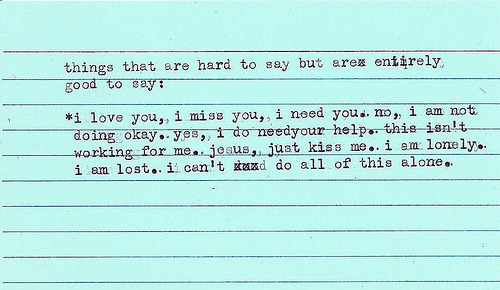 things that are hard to say but arex entirely
good to say:
*i love you, i miss you, i need you. no, i am not
doing okay. yes, i do needyour help. this isn't
working for me. jesus, just kiss me. i am lonely.
i am lost. i can't xxxd do all of this alone.